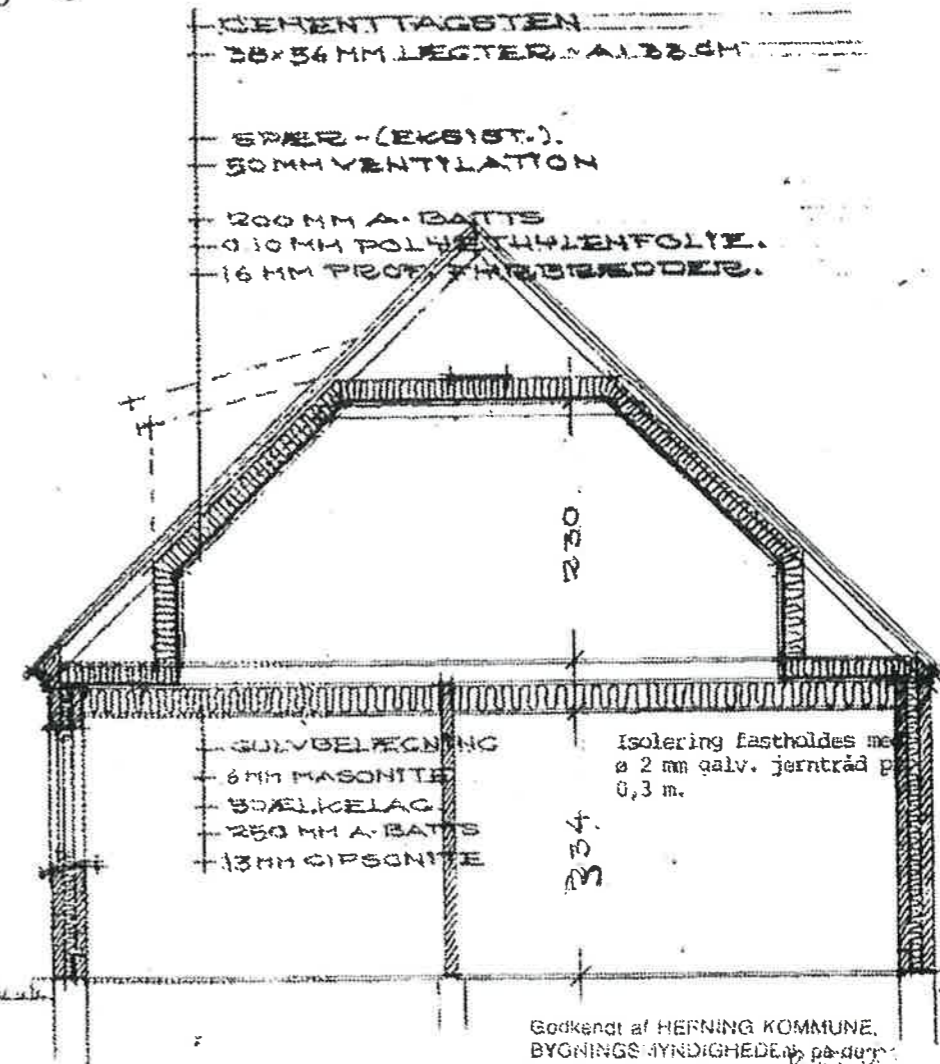 CEMENTTAGSTEN
38×56 MM LÆGTER
SPÆR - (EKSIST.).
50 MM VENTILATION
200 MM A-BATTS
0.10 MM POLYETHYLENFOLIE.
16 MM PROF. FYRBRÆDDER.
230
GULVBELÆGNING
6 MM MASONITE
BJÆLKELAG
250 MM A-BATTS
13 MM GIPSONITE
Isolering fastholdes
ø 2 mm galv. jerntråd
0,3 m.
234
Godkendt af HERNING KOMMUNE,
BYGNINGSMYNDIGHEDEN,